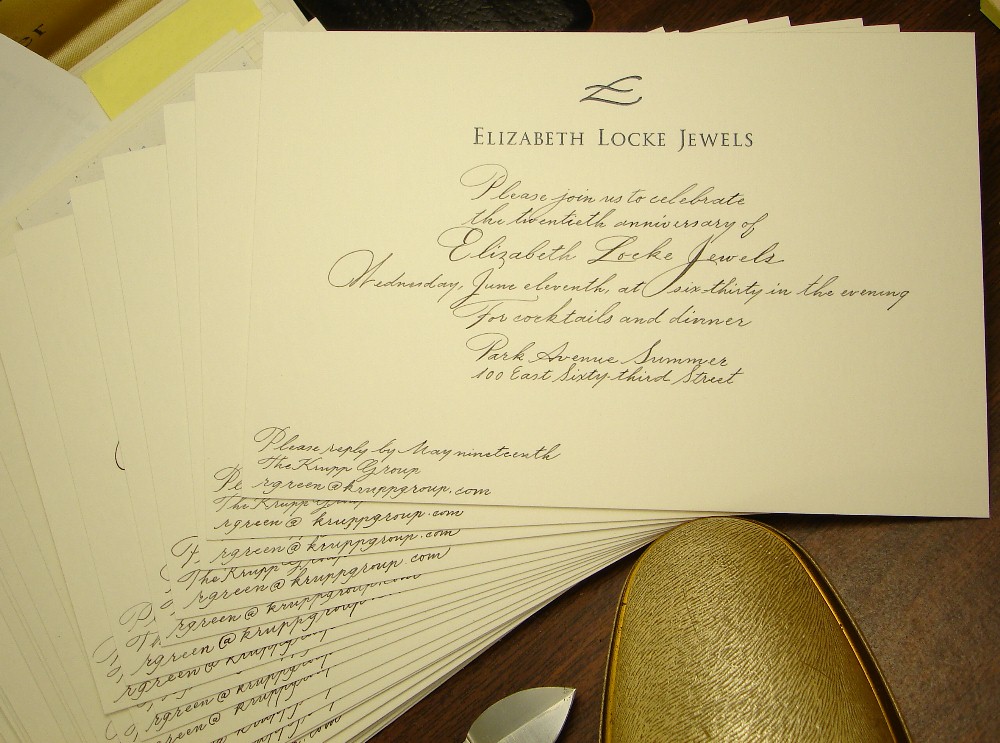 Elizabeth Locke Jewels
Please join us to celebrate
the twentieth anniversary of
Elizabeth Locke Jewels
Wednesday, June eleventh, at six-thirty in the evening
For cocktails and dinner
Park Avenue Summer
100 East Sixty-third Street
Please reply by May nineteenth
The Krupp Group
rgreen@kruppgroup.com
The Krupp Group
rgreen@kruppgroup.com
rgreen@kruppgroup.com
The Krupp
rgreen@kruppgroup.com
rgreen@kruppgroup.com
rgreen@kruppgroup.com
rgreen@kruppgroup
rgreen@kruppgroup
rgreen@